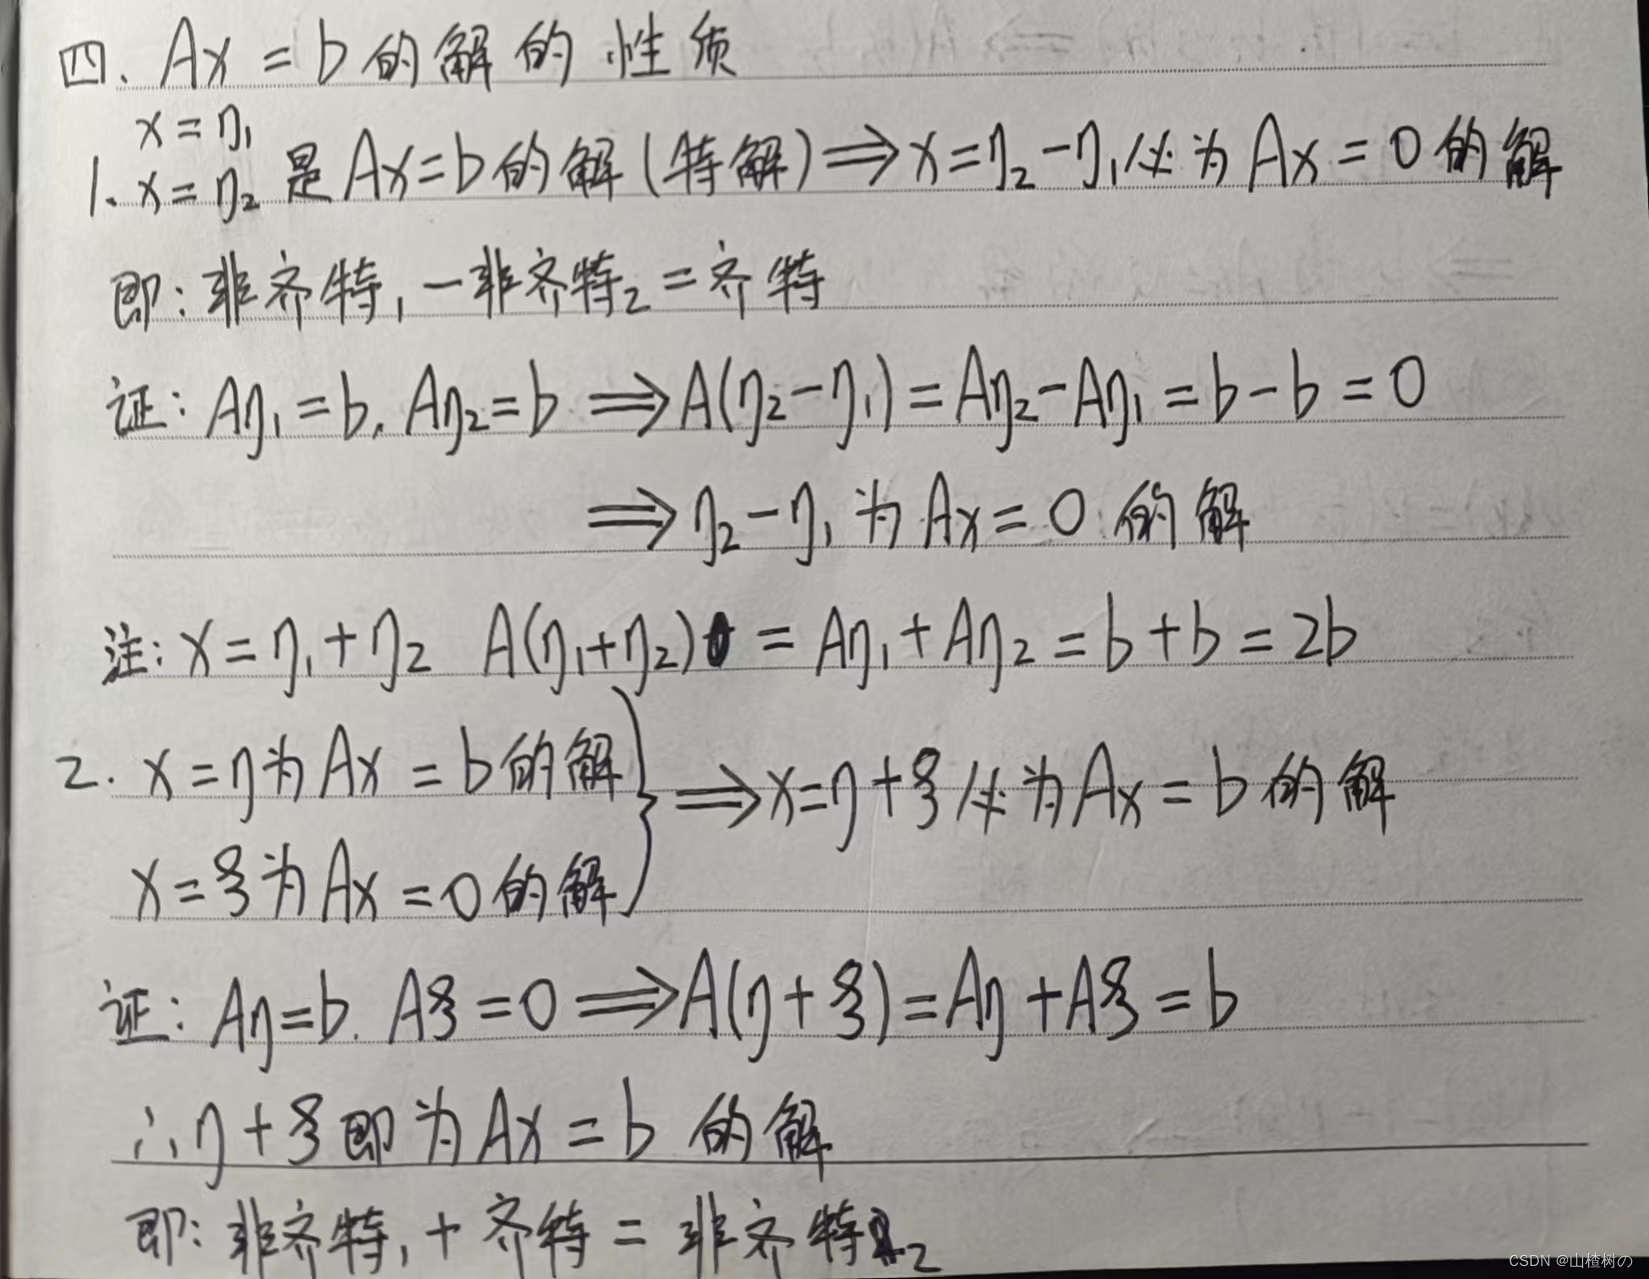 四. Ax = b 的解的性质
x = η₁
1. x = η₂ 是 Ax = b 的解(特解) ⟹ x = η₂ - η₁ 必为 Ax = 0 的解
即: 非齐特₁ - 非齐特₂ = 齐特
证: Aη₁ = b. Aη₂ = b ⟹ A(η₂ - η₁) = Aη₂ - Aη₁ = b - b = 0
⟹ η₂ - η₁ 为 Ax = 0 的解
注: x = η₁ + η₂ A(η₁+η₂) = Aη₁ + Aη₂ = b + b = 2b
2. x = η 为 Ax = b 的解 } ⟹ x = η + ξ 必为 Ax = b 的解
x = ξ 为 Ax = 0 的解
证: Aη = b. Aξ = 0 ⟹ A(η + ξ) = Aη + Aξ = b
∴ η + ξ 即为 Ax = b 的解
即: 非齐特₁ + 齐特 = 非齐特₂
CSDN @山楂树の